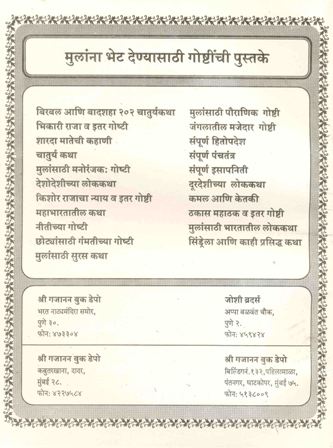 मुलांना भेट देण्यासाठी गोष्टींची पुस्तके
बिरबल आणि बादशहा २०२ चातुर्यकथा
भिकारी राजा व इतर गोष्टी
शारदा मातेची कहाणी
चातुर्य कथा
मुलांसाठी मनोरंजक: गोष्टी
देशोदेशीच्या लोककथा
किशोर राजाचा न्याय व इतर गोष्टी
महाभारतातील कथा
नीतीच्या गोष्टी
छोट्यांसाठी गंमतीच्या गोष्टी
मुलांसाठी सुरस कथा
मुलांसाठी पौराणिक गोष्टी
जंगलातील मजेदार गोष्टी
संपूर्ण हितोपदेश
संपूर्ण पंचतंत्र
संपूर्ण इसापनिती
दूरदेशीच्या लोककथा
कमल आणि केतकी
ठकास महाठक व इतर गोष्टी
मुलांसाठी भारतातील लोककथा
सिंड्रेला आणि काही प्रसिद्ध कथा
श्री गजानन बुक डेपो
भरत नाट्यमंदिरा समोर,
पुणे ३०.
फोन: ४७३३०४
जोशी ब्रदर्स
अप्पा बळवंत चौक,
पुणे २.
फोन: ४५९४२४
श्री गजानन बुक डेपो
कबुतरखाना, दादर,
मुंबई २८.
फोन: ४२२७५८४
श्री गजानन बुक डेपो
बिल्डिंगनं.१३२,पहिलामाळा,
पंतनगर, घाटकोपर, मुंबई ७५.
फोन: ५१३८००९